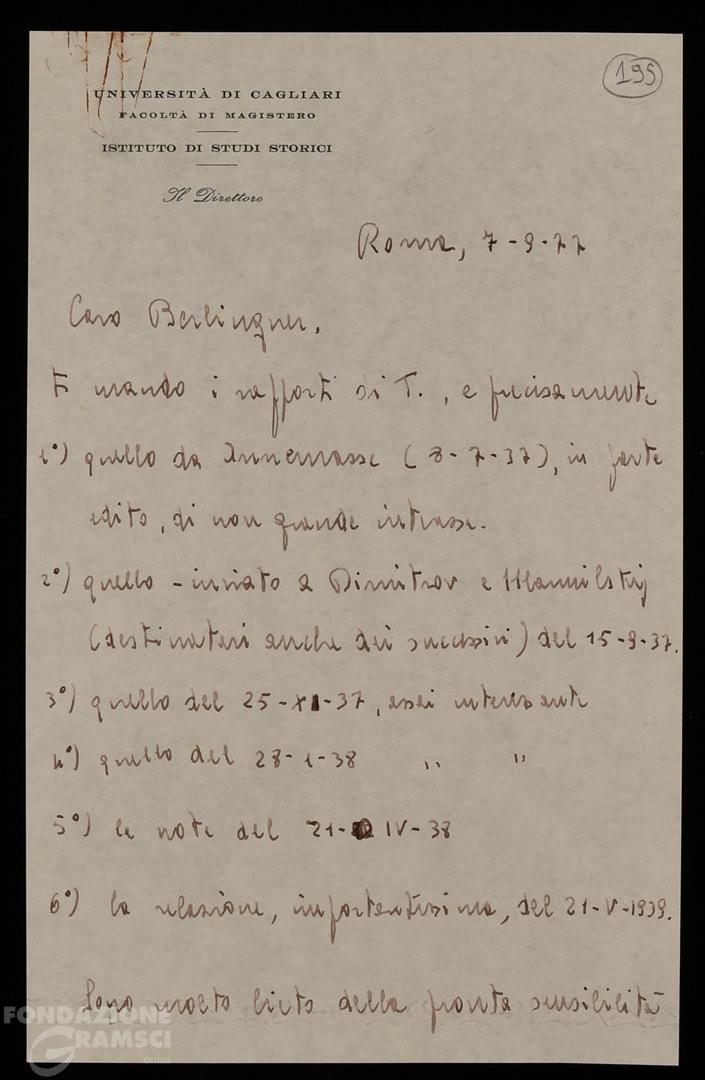 195
UNIVERSITÀ DI CAGLIARI
FACOLTÀ DI MAGISTERO
ISTITUTO DI STUDI STORICI
Il Direttore
Roma, 7-9-77
Caro Berlinguer,
ti mando i rapporti di T., e precisamente
1°) quello da Annemasse ( 8-7-37), in parte
edito, di non grande interesse.
2°) quello - inviato a Dimitrov e Manuilskij
(destinatari anche dei successivi) del 15-9-37.
3°) quello del 25-XI-37, assai interessante
4°) quello del 28-1-38 " "
5°) le note del 21-IV-38
6°) la relazione, importantissima, del 21-V-1939.
Sono molto lieto della pronta sensibilità
FONDAZIONE
GRAMSCI
onlus